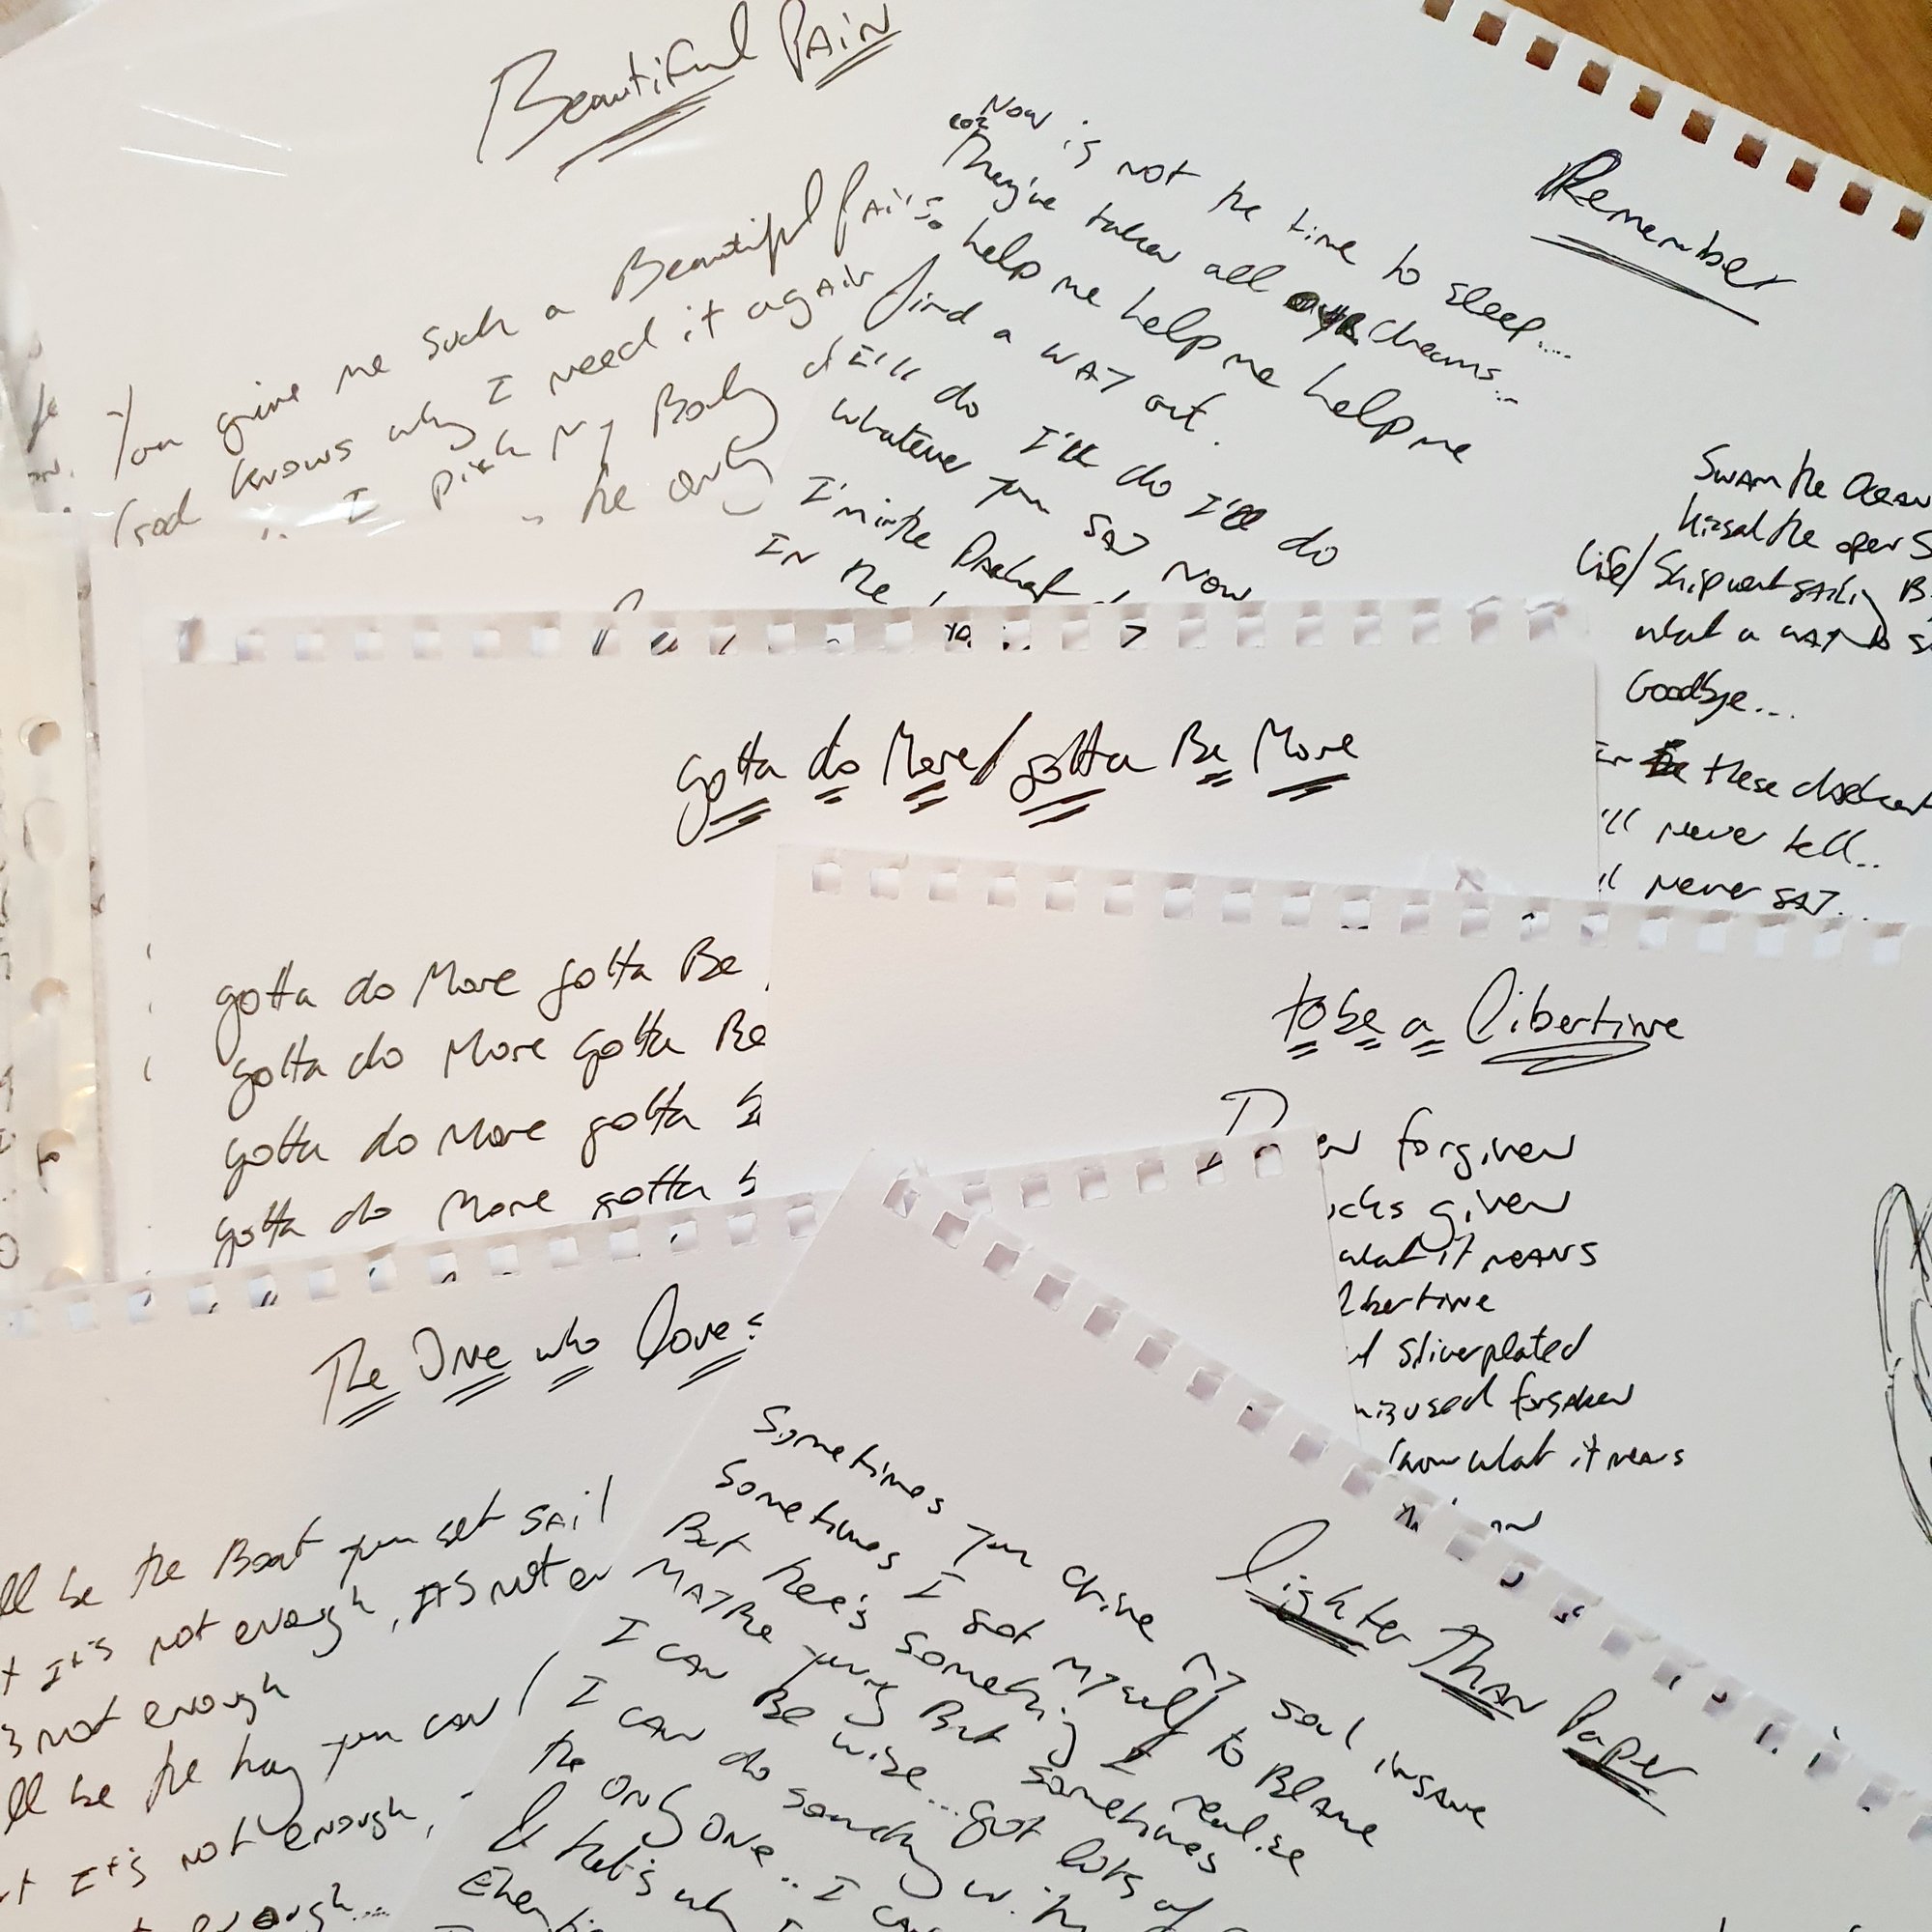 Beautiful Pain
You give me such a Beautiful Pain
God knows why I need it again
I pick my Body
the only
Remember
Now is not the time to sleep....
coz They've taken all dreams...
so help me help me help me
find a way out.
I'll do I'll do I'll do
whatever you say now
I'm in the Darkest
In the
Swam the Ocean
the open S
life/ship went sailing B
what a way to s
Goodbye...
In these darkest
'll never tell..
'll never say...
gotta do More/gotta Be More
gotta do More gotta Be
gotta do More gotta Be
gotta do More gotta
gotta do More gotta
to be a libertine
forgiven
given
what it means
libertine
sliverplated
misused forsaken
know what it means
The One who loves
ll be the Boat you set sail
t It's not enough, it's not en
s not enough
ll be the you can
t It's not enough,
enough...
Lighter Than Paper
Sometimes you drive my soul insane
Sometimes I got myself to Blame
But there's something I realise
Maybe young But sometimes
I can Be wise... got lots of
I can do something with
the only one.. I can
& that's why I